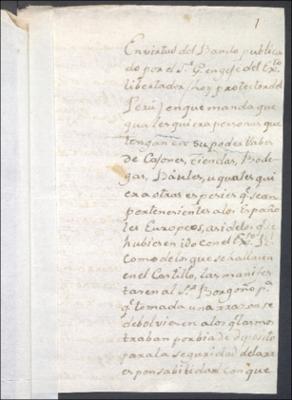 1
En virtud del Bando publica
do por el S.r G. en gefe del Ex.to
libertador, (hoy protector del
Perú) en que manda que
qualesquiera personas que
tengan en su poder llabes
de Cajones, tiendas, Bode
gas, Baúles, u qualesqui
era otras espesies q.e sean
pertenesientes a los Españo
les Europeos, asi de los q.e
hubieren ido con el Ex.to R.
como de los que se hallaren
en el Castillo, las manifes
taren al S.r Borgoño p.a
q.e tomada una razon se
debolviesen a los q.e las mos
traban por bia de deposito
para la seguridad de la res
ponsabilidad. Con que